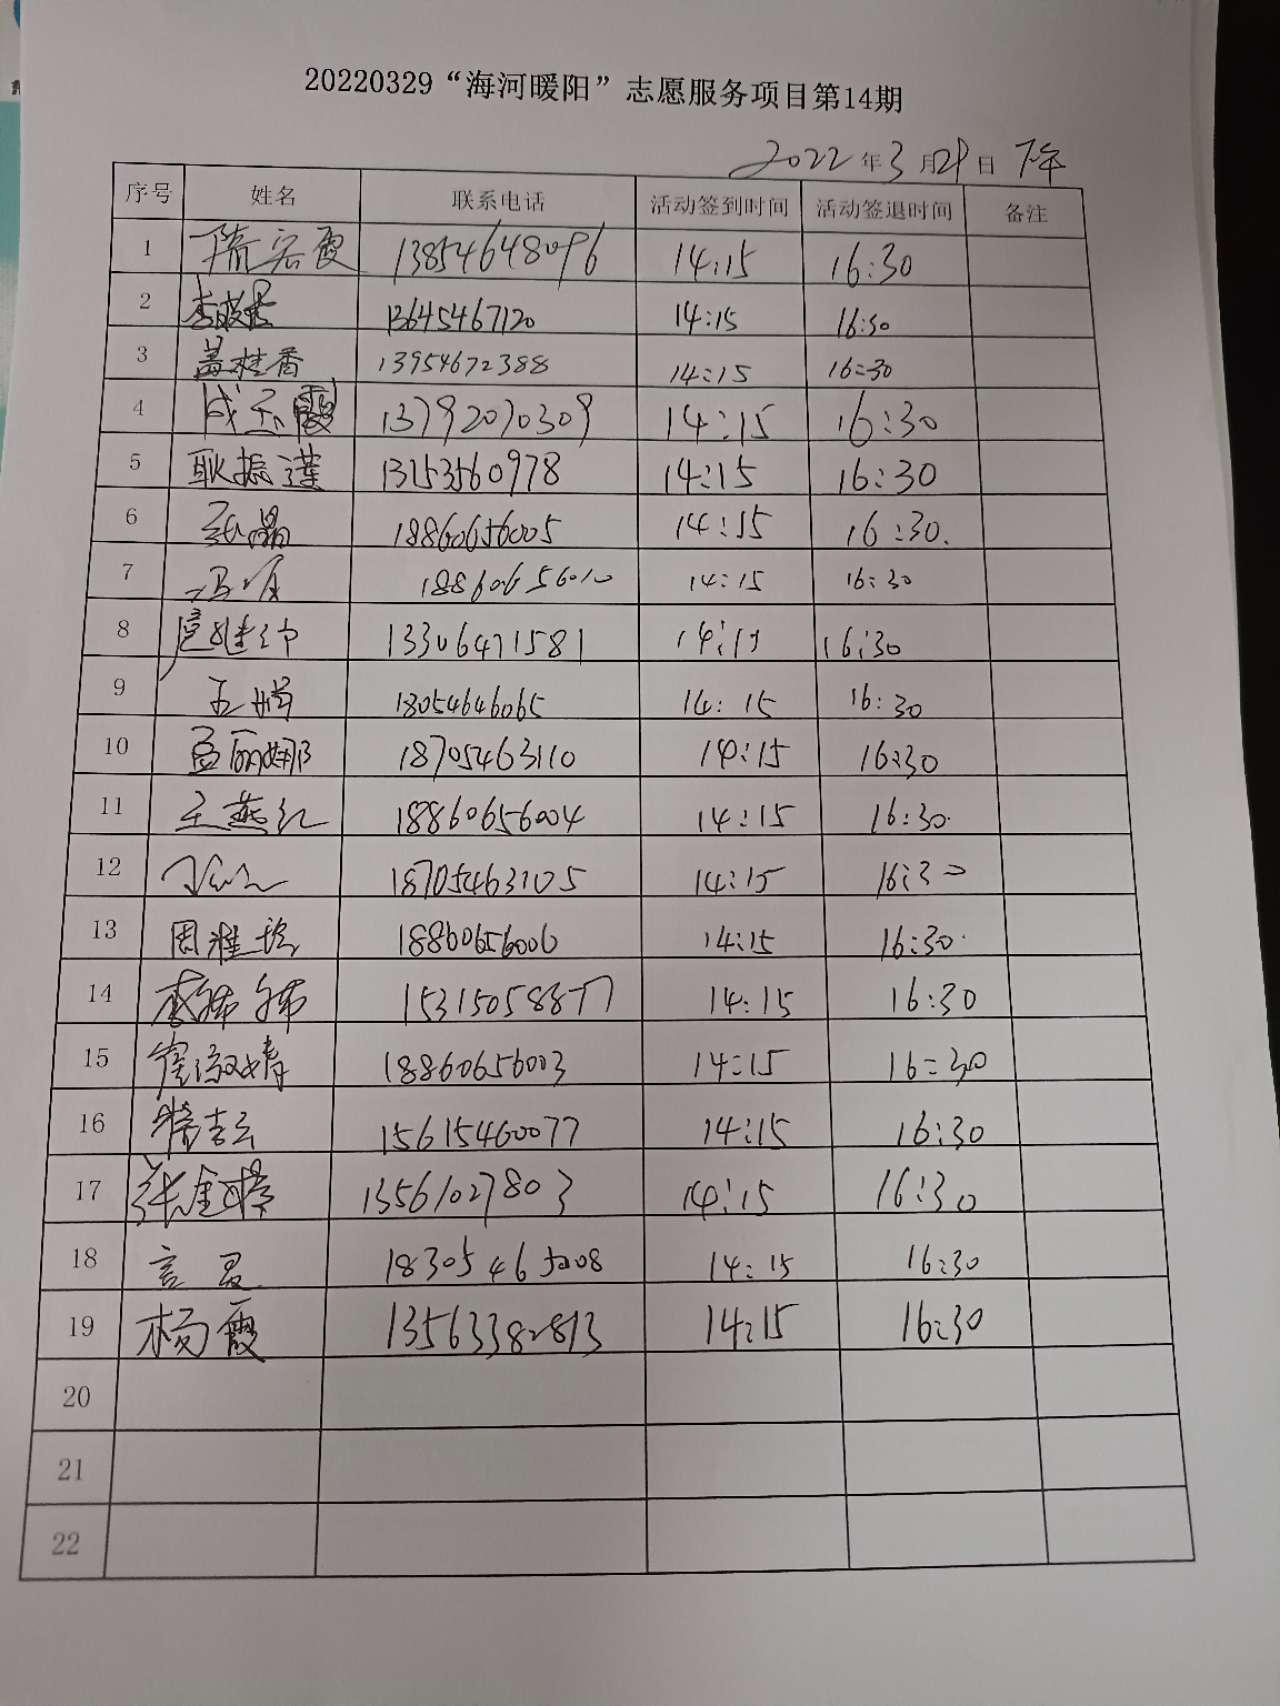 20220329“海河暖阳”志愿服务项目第14期
2022年3月29日 下午
序号 姓名 联系电话 活动签到时间 活动签退时间 备注
1 隋宏霞 13854648096 14:15 16:30
2 13645467120 14:15 16:30
3 盖桂香 13954672388 14:15 16:30
4 成玉霞 13792070309 14:15 16:30
5 耿振莲 13253560978 14:15 16:30
6 18860656005 14:15 16:30.
7 18860656010 14:15 16:30
8 13306471581 14:15 16:30
9 18054646065 14:15 16:30
10 孟丽娜 18705463110 14:15 16:30
11 王燕红 18860656004 14:15 16:30.
12 18705463105 14:15 16:30
13 18860656006 14:15 16:30.
14 15315058877 14:15 16:30
15 崔淑婧 18860656003 14:15 16:30
16 15615460077 14:15 16:30
17 13561027803 14:15 16:30
18 18305465208 14:15 16:30
19 杨霞 13563382813 14:15 16:30
20
21
22